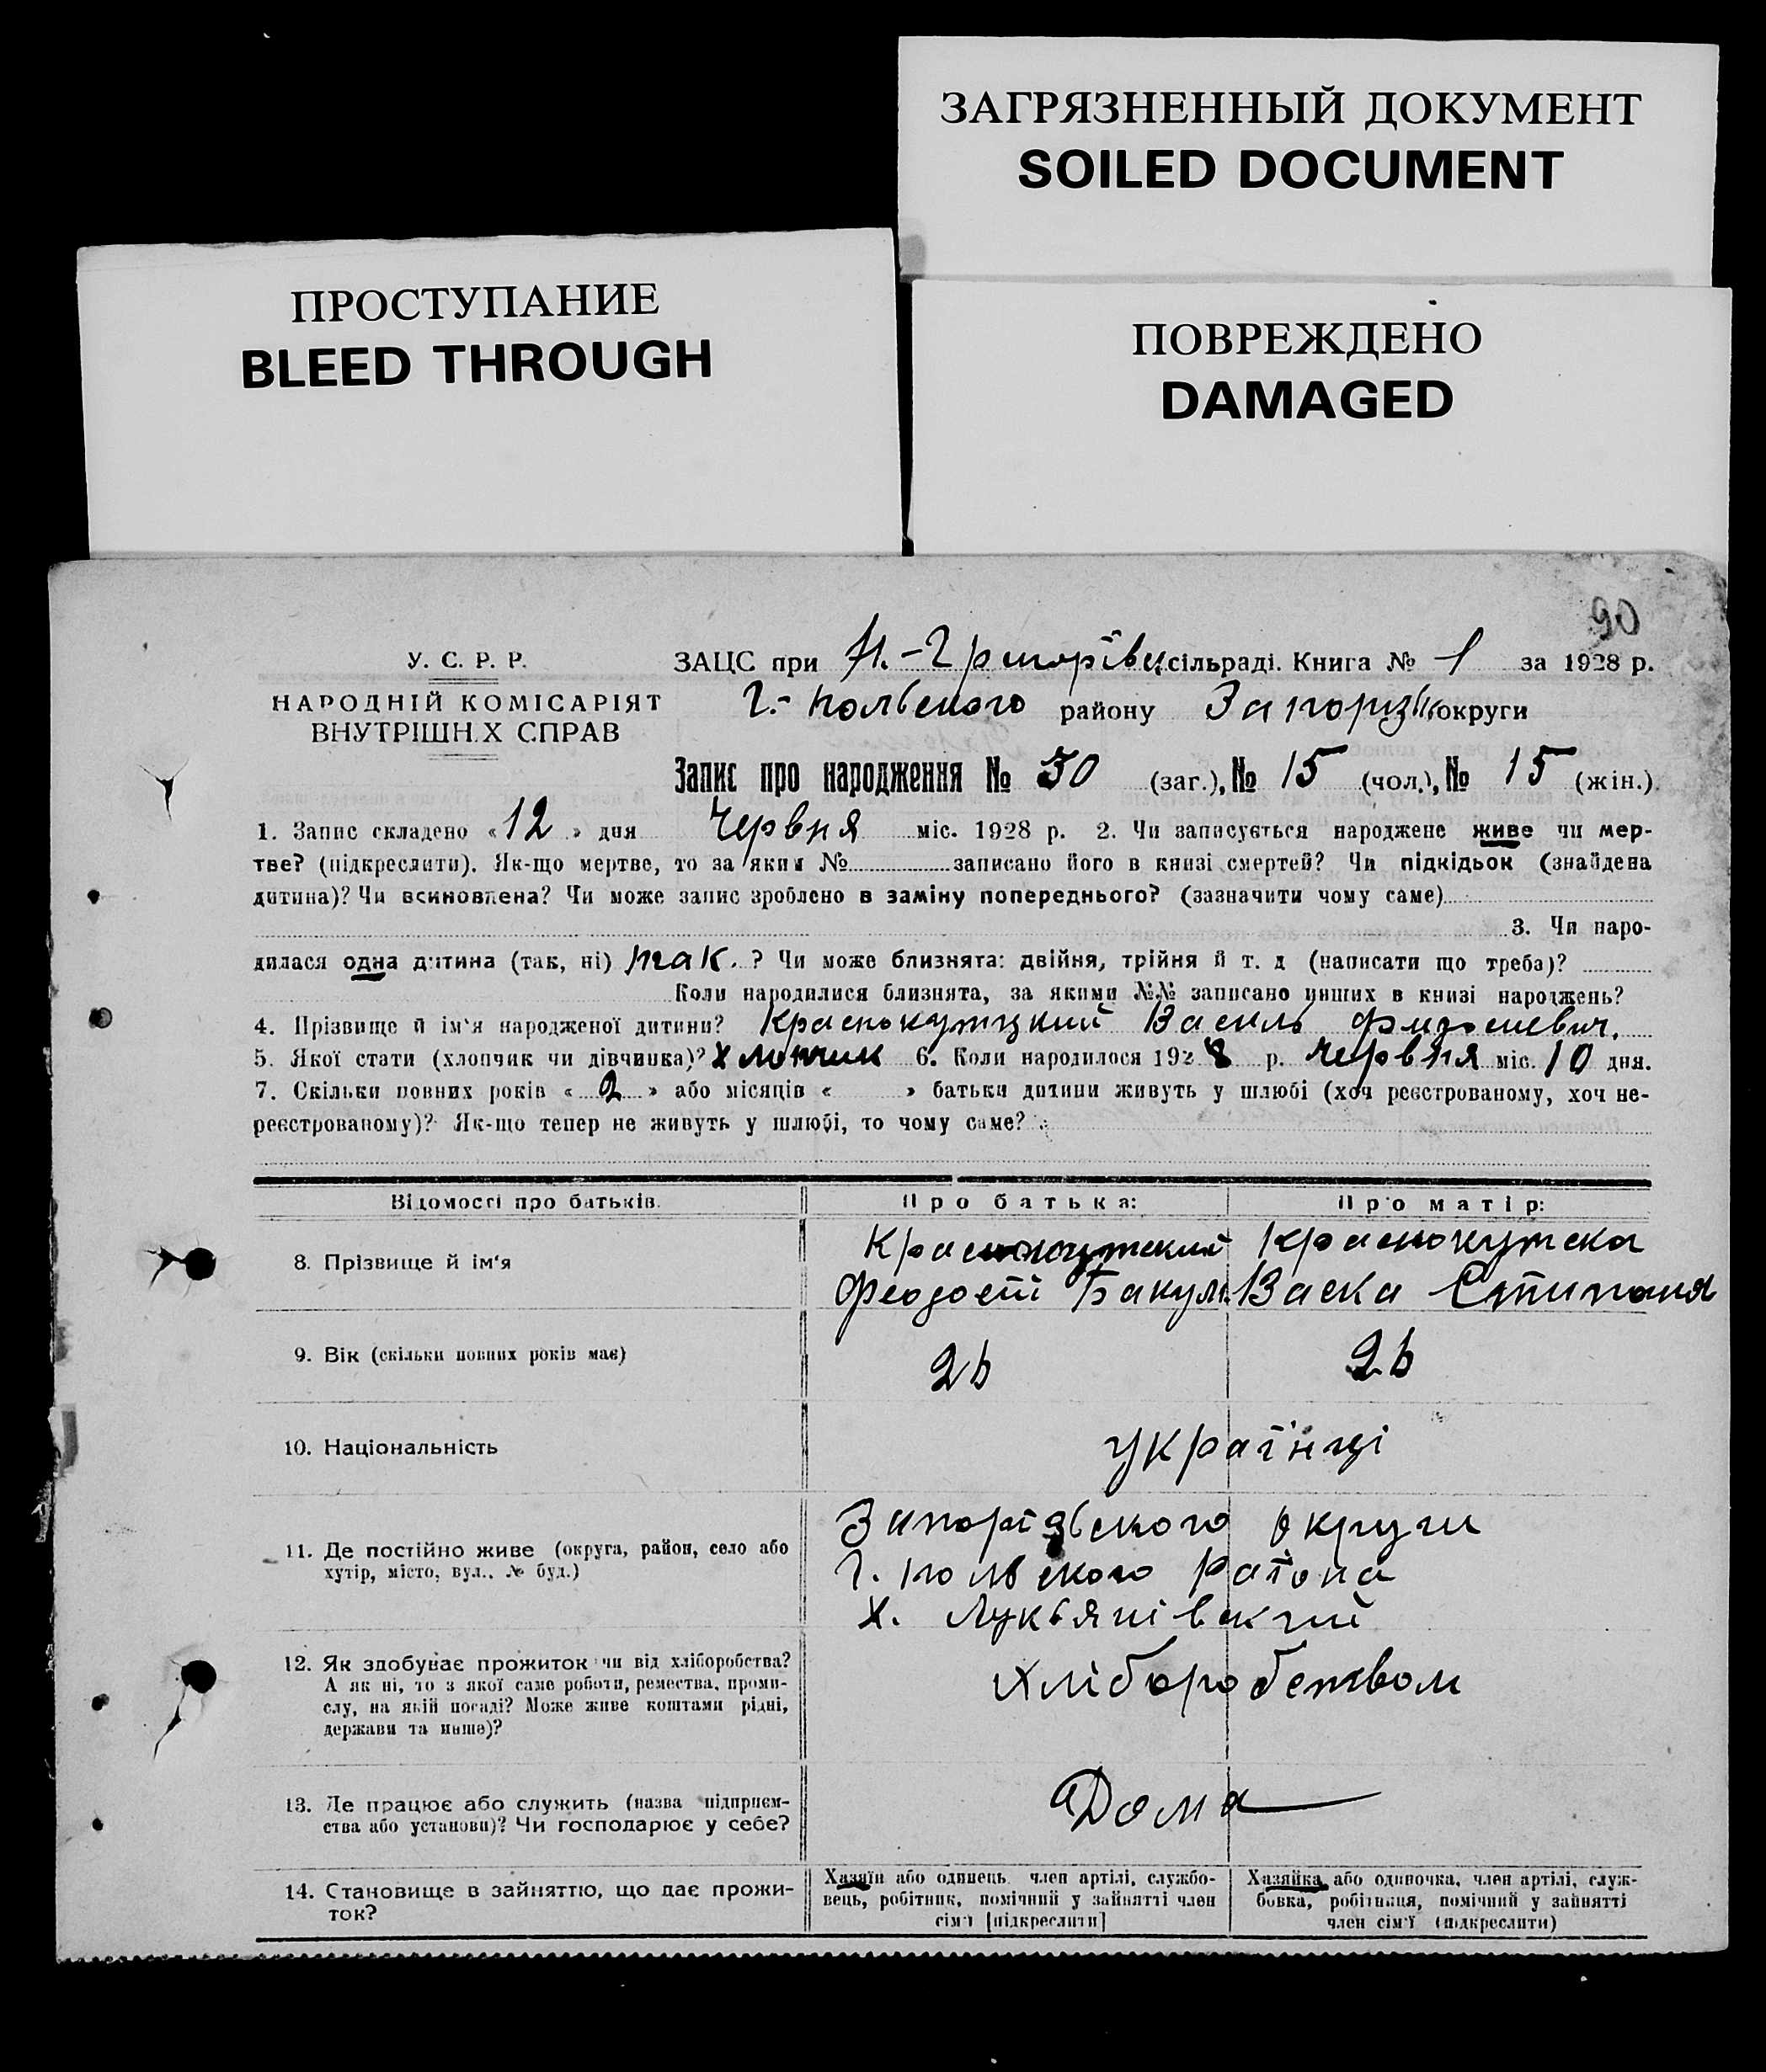 ЗАГРЯЗНЕННЫЙ ДОКУМЕНТ
SOILED DOCUMENT
ПРОСТУПАНИЕ
BLEED THROUGH
ПОВРЕЖДЕНО
DAMAGED
90
У. С. Р. Р.
НАРОДНІЙ КОМІСАРІЯТ
ВНУТРІШН.Х СПРАВ
ЗАЦС при Н.-Григорівц. сільраді. Книга № 1 за 1928 р.
Г.-польського району Запорізьк. округи
Запис про народження № 30 (заг.), № 15 (чол.), № 15 (жін.).
1. Запис складено «12» дня Червня міс. 1928 р. 2. Чи записується народжене живе чи мер-
тве? (підкреслити). Як-що мертве, то за яким № записано його в книзі смертей? Чи підкідьок (знайдена
дитина)? Чи всиновлена? Чи може запис зроблено в заміну попереднього? (зазначити чому саме)
3. Чи наро-
дилася одна дитина (так, ні) так. ? Чи може близнята: двійня, трійня й т. д (написати що треба)?
Коли народилися близнята, за якими №№ записано инших в книзі народжень?
4. Прізвище й ім'я народженої дитини? Краснокутцкий Василь
5. Якої стати (хлопчик чи дівчинка)? Хлопчик 6. Коли народилося 1928 р. Червня міс. 10 дня.
7. Скільки повних років «2» або місяців « » батьки дитини живуть у шлюбі (хоч реєстрованому, хоч не-
реєстрованому)? Як-що тепер не живуть у шлюбі, то чому саме?
Відомості про батьків. Про батька: Про матір:
8. Прізвище й ім'я
Краснокутский Краснокутска
Феодосій Васка
9. Вік (скільки повних років має)
26 26
10. Національність
українці
11. Де постійно живе (округа, район, село або
хутір, місто, вул., № буд.)
Запорізьского округи
Г. польского раїона
х. Лукьянівский
12. Як здобуває прожиток чи від хліборобства?
А як ні, то з якої саме роботи, ремества, проми-
слу, на якій посаді? Може живе коштами рідні,
держави та инше)?
Хліборобством
13. Де працює або служить (назва підприєм-
ства або установи)? Чи господарює у себе?
Дома
14. Становище в зайняттю, що дає прожи-
ток?
Хазяїн або одинець член артілі, службо-
вець, робітник, помічний у зайнятті член
сім'ї [підкреслити]
Хазяйка або одиночка, член артілі, служ-
бовка, робітниця, помічний у зайнятті
член сім'ї (підкреслити)